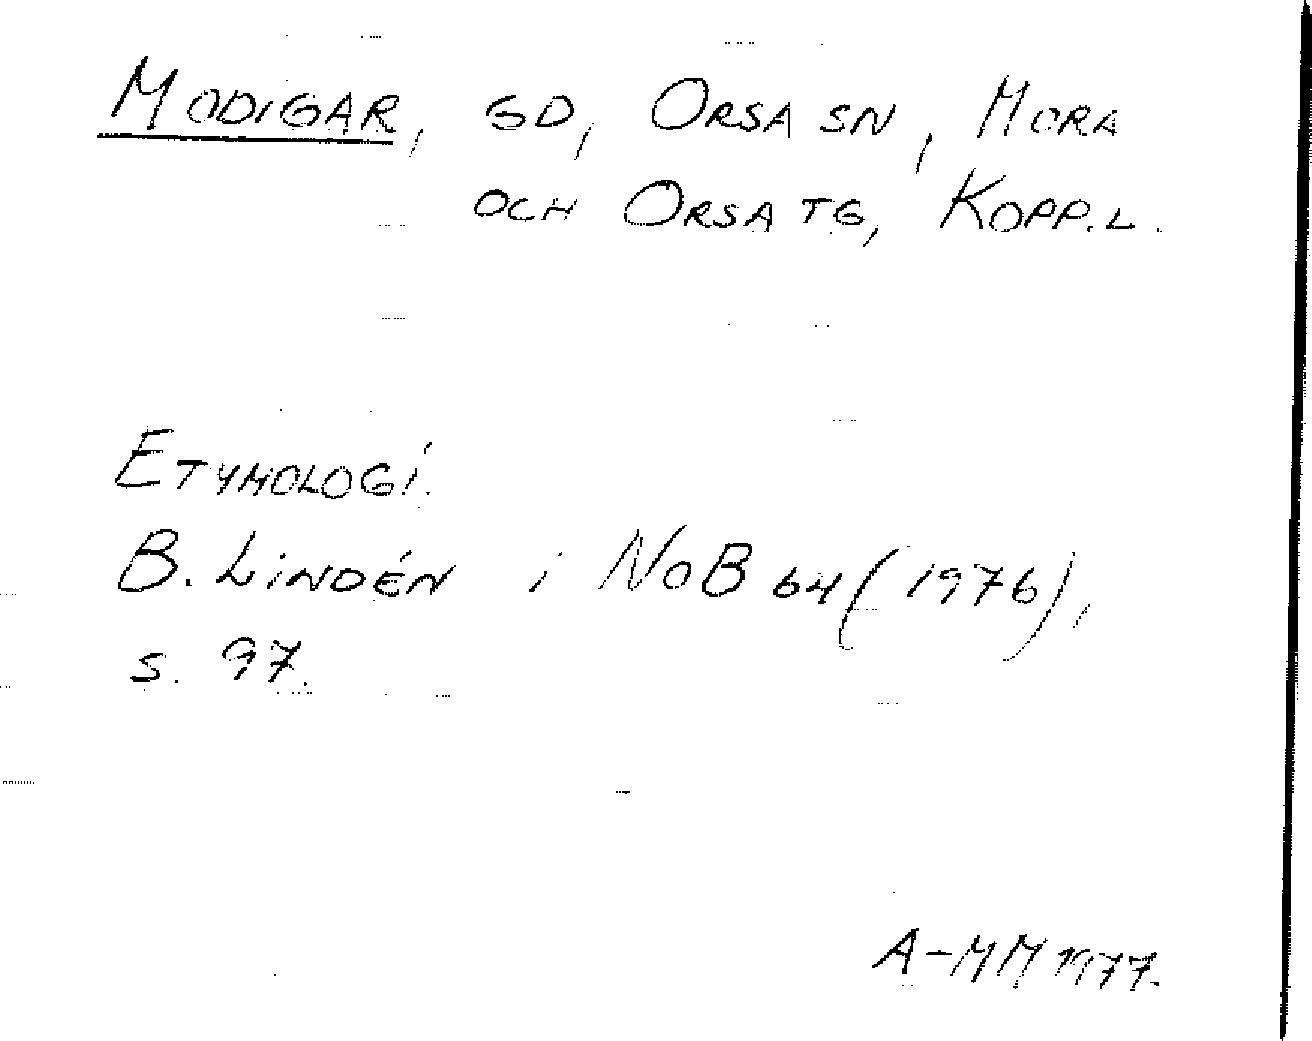 MODIGAR, GD, ORSA SN, MORA
OCH ORSA TG, KOPP.L.
ETYMOLOGI.
B. LINDÉN i NoB 64 (1976),
s. 97.
A-MM 1977.